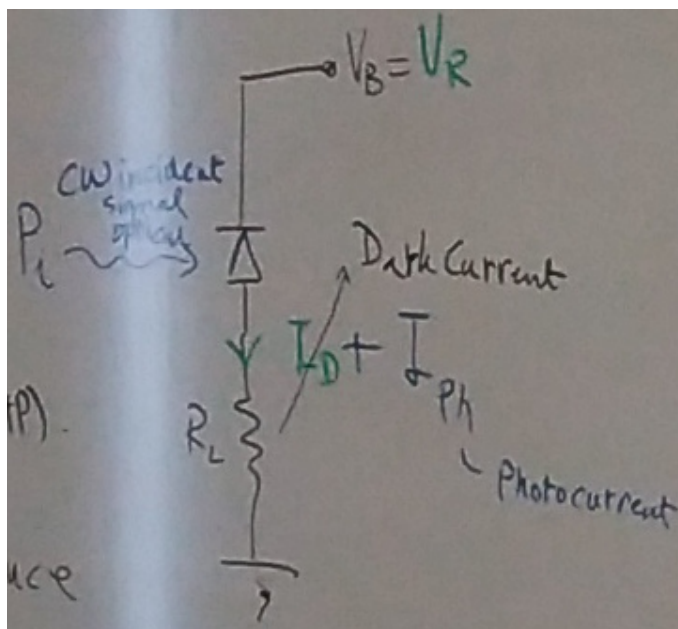 V_B = V_R
CW incident
signal
optical
P_i
Dark Current
I_D + I_Ph
R_L
Photocurrent